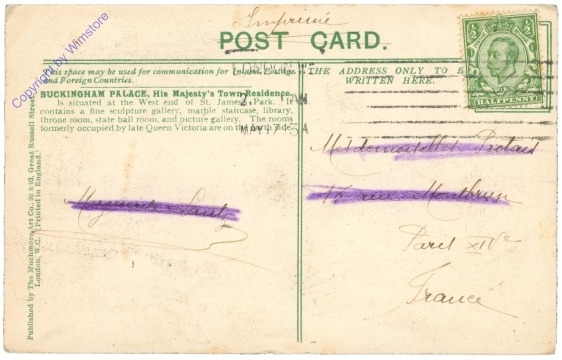 Imprimé
POST CARD.
This space may be used for communication for Inland, Postage and Foreign Countries.
THE ADDRESS ONLY TO BE WRITTEN HERE.
BUCKINGHAM PALACE, His Majesty's Town Residence.
Is situated at the West end of St. James's Park. It
contains a fine sculpture gallery, marble staircase, library,
throne room, state ball room, and picture gallery. The rooms
formerly occupied by late Queen Victoria are on the North side.
Published by The Muchmore Art Co., 92 & 93, Great Russell Street,
London, W.C. Printed in England.
LONDON
MAY 17 13A
½
½
HALFPENNY
Mesdemoiselles
rue
Paris XIVe
France
Copyright by Wimstore